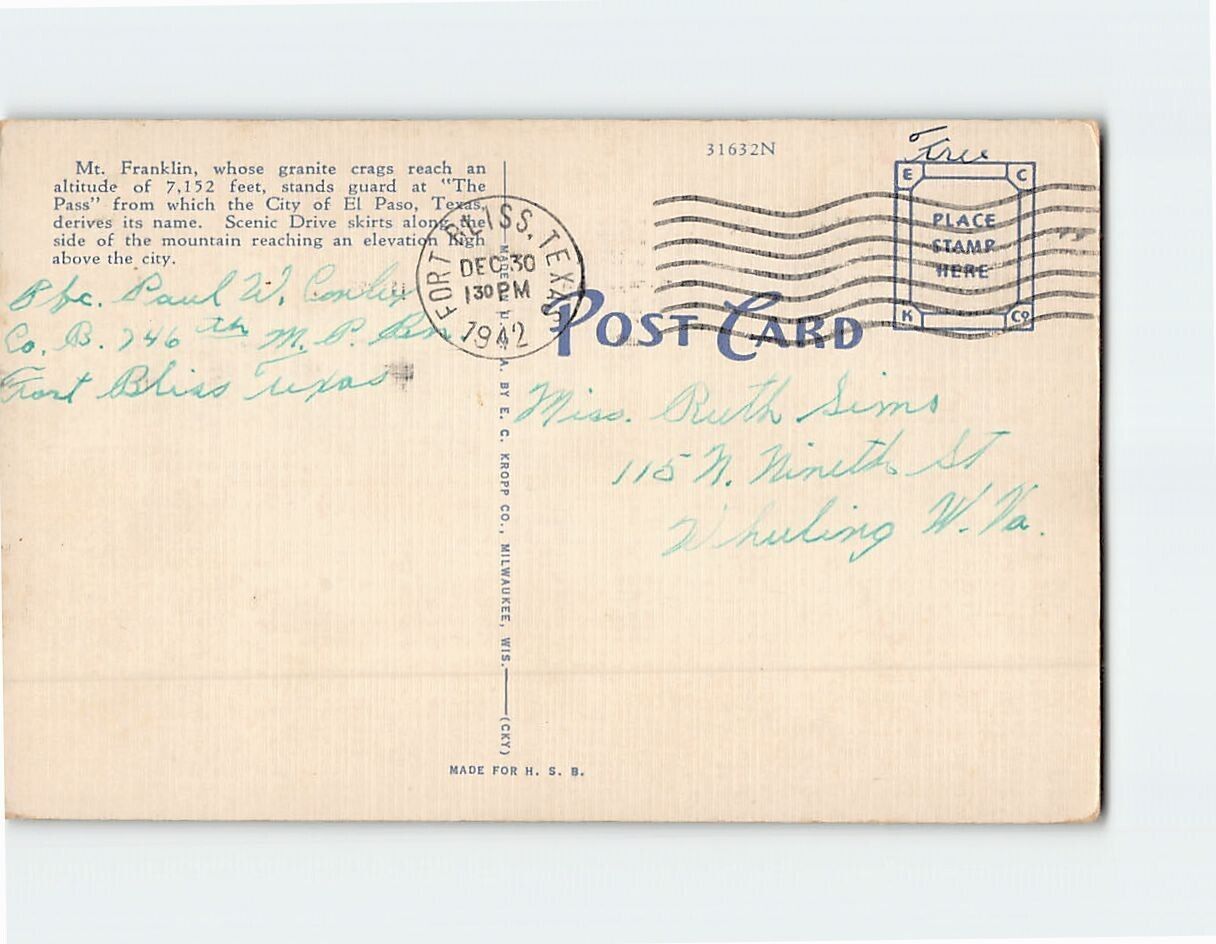 31632N
Free
Mt. Franklin, whose granite crags reach an
altitude of 7,152 feet, stands guard at "The
Pass" from which the City of El Paso, Texas,
derives its name. Scenic Drive skirts along the
side of the mountain reaching an elevation high
above the city.
E C
PLACE
STAMP
HERE
K Co
FORT BLISS, TEXAS
DEC 30
1 30 PM
1942
Pfc. Paul W.
Co. B. 746 th M. P. Bn.
Fort Bliss Texas
POST CARD
Miss. Ruth Sims
115 N. Nineth St
Wheeling W. Va.
MADE IN U. S. A. BY E. C. KROPP CO., MILWAUKEE, WIS.—(CKY)
MADE FOR H. S. B.